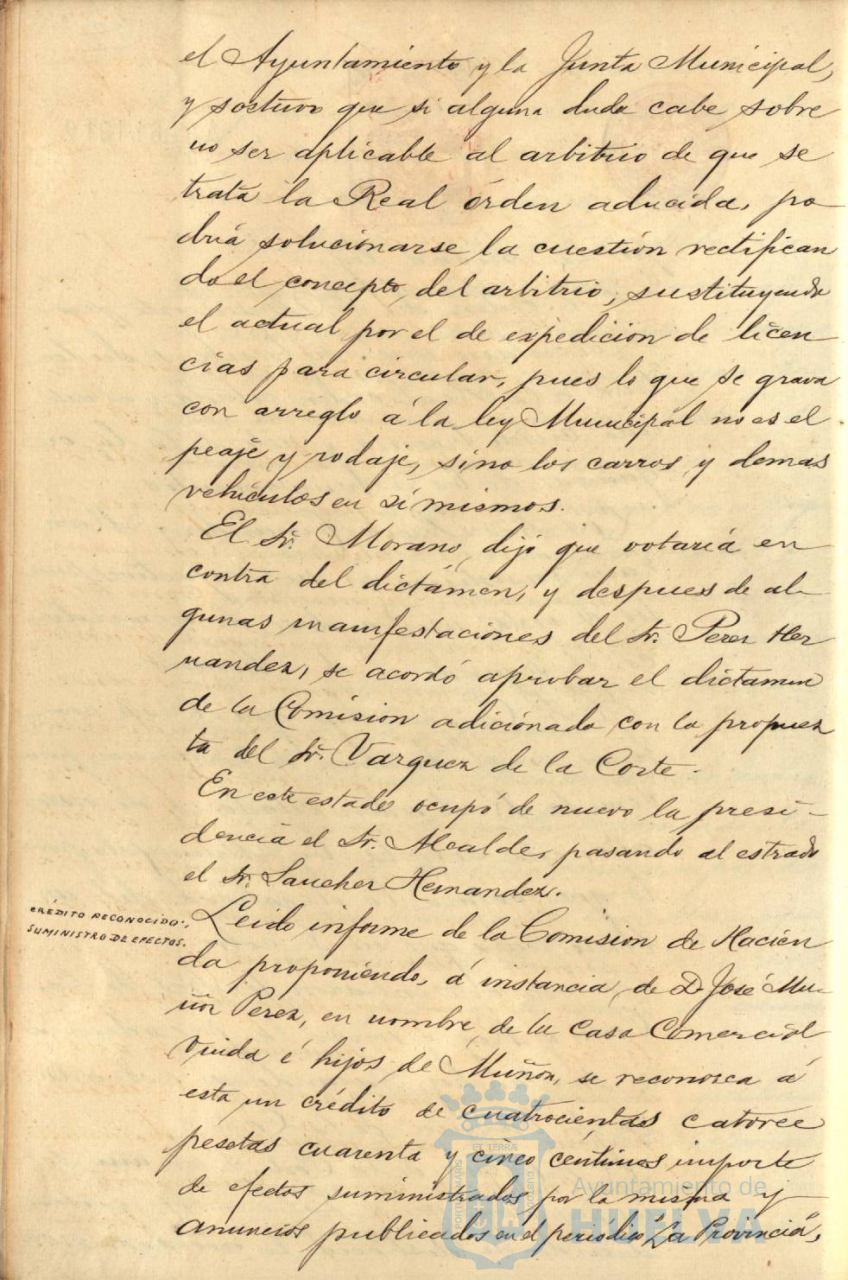 el Ayuntamiento y la Junta Municipal,
y sostuvo que si alguna duda cabe sobre
no ser aplicable al arbitrio de que se
trata la Real órden aducida, po
drá solucionarse la cuestión rectifican
do el concepto del arbitrio, sustituyendo
el actual por el de expedición de licen
cias para circular, pues lo que se grava
con arreglo á la ley Municipal no es el
peaje y rodaje, sino los carros y demas
vehículos en sí mismos.
El Sr. Morano dijo que votaría en
contra del dictámen, y despues de al-
gunas manifestaciones del Sr. Perez Her
nandez, se acordó aprobar el dictamen
de la Comision adicionado con la propuez
ta del Sr. Vazquez de la Corte.
En este estado ocupó de nuevo la presi-
dencia el Sr. Alcalde, pasando al estrado
el Sr. Sanchez Hernandez.
CRÉDITO RECONOCIDO:,
SUMINISTRO DE EFECTOS.
Leido informe de la Comision de Hacien
da proponiendo, á instancia de D. José Mu-
ñoz Perez, en nombre de la Casa Comercial
Viuda é hijos de Muñoz, se reconozca á
esta un crédito de cuatrocientas catorce
pesetas cuarenta y cinco céntimos importe
de efectos suministrados por la misma y
anuncios publicados en el periódico "La Provincia",
Ayuntamiento de
HUELVA